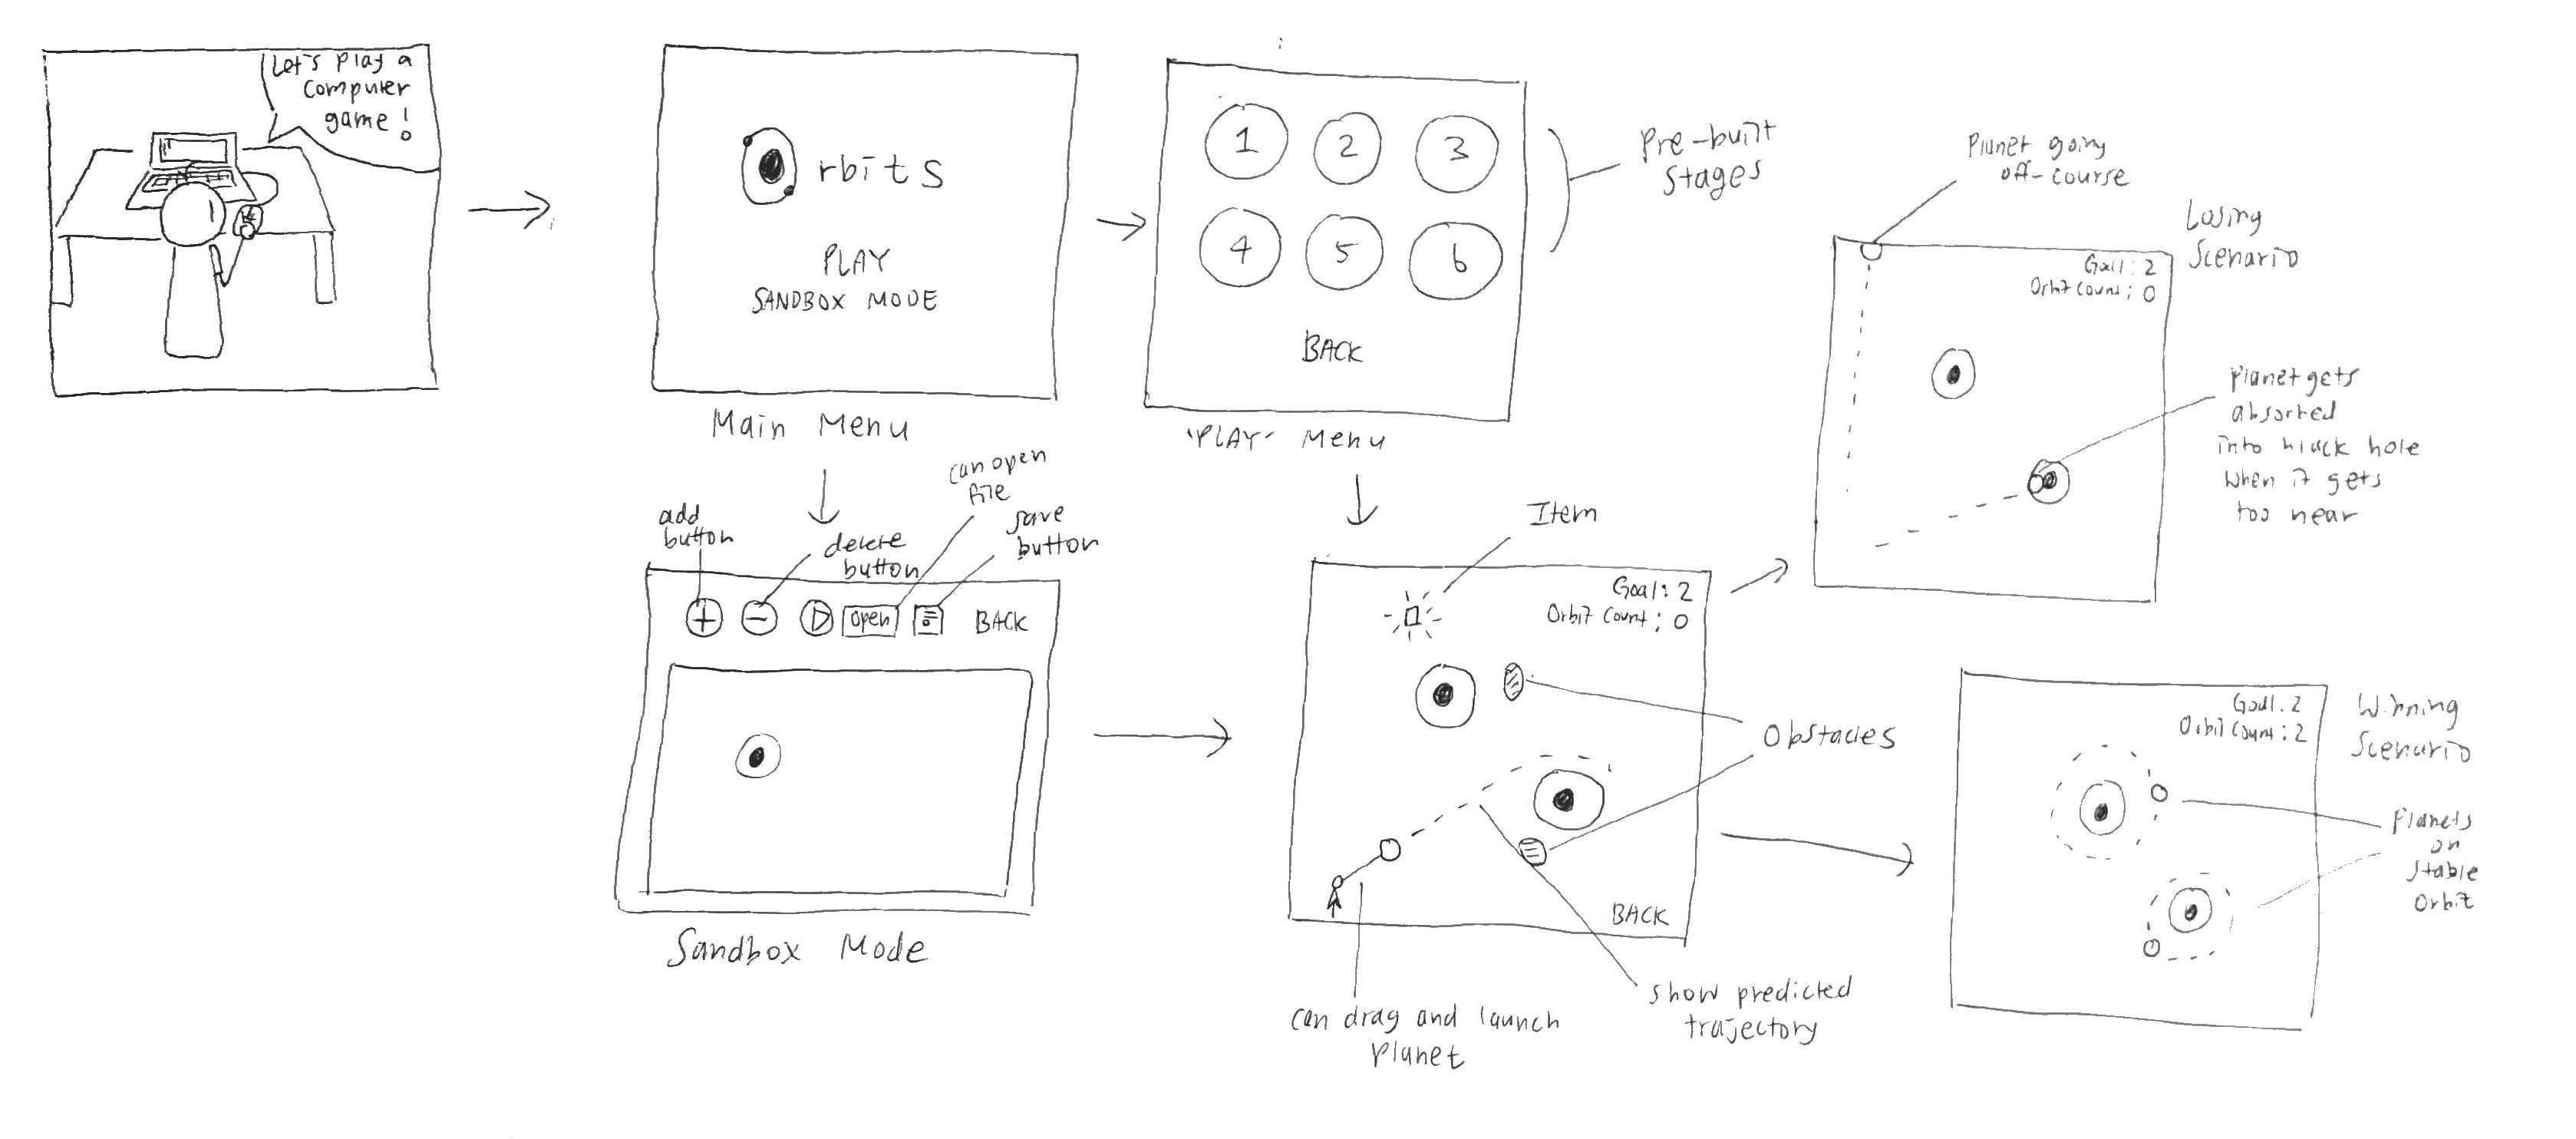 Let's play a
computer
game!
rbits
PLAY
SANDBOX MODE
Main Menu
1 2 3
4 5 6
BACK
'PLAY' Menu
Pre-built
Stages
add
button
delete
button
can open
file
save
button
open
BACK
Sandbox Mode
Item
Goal: 2
Orbit Count: 0
Obstacles
BACK
can drag and launch
Planet
show predicted
trajectory
Planet going
off-course
Losing
Scenario
Goal: 2
Orbit Count: 0
Planet gets
absorbed
into black hole
when it gets
too near
Goal: 2
Orbit Count: 2
Winning
Scenario
Planets
on
stable
orbit